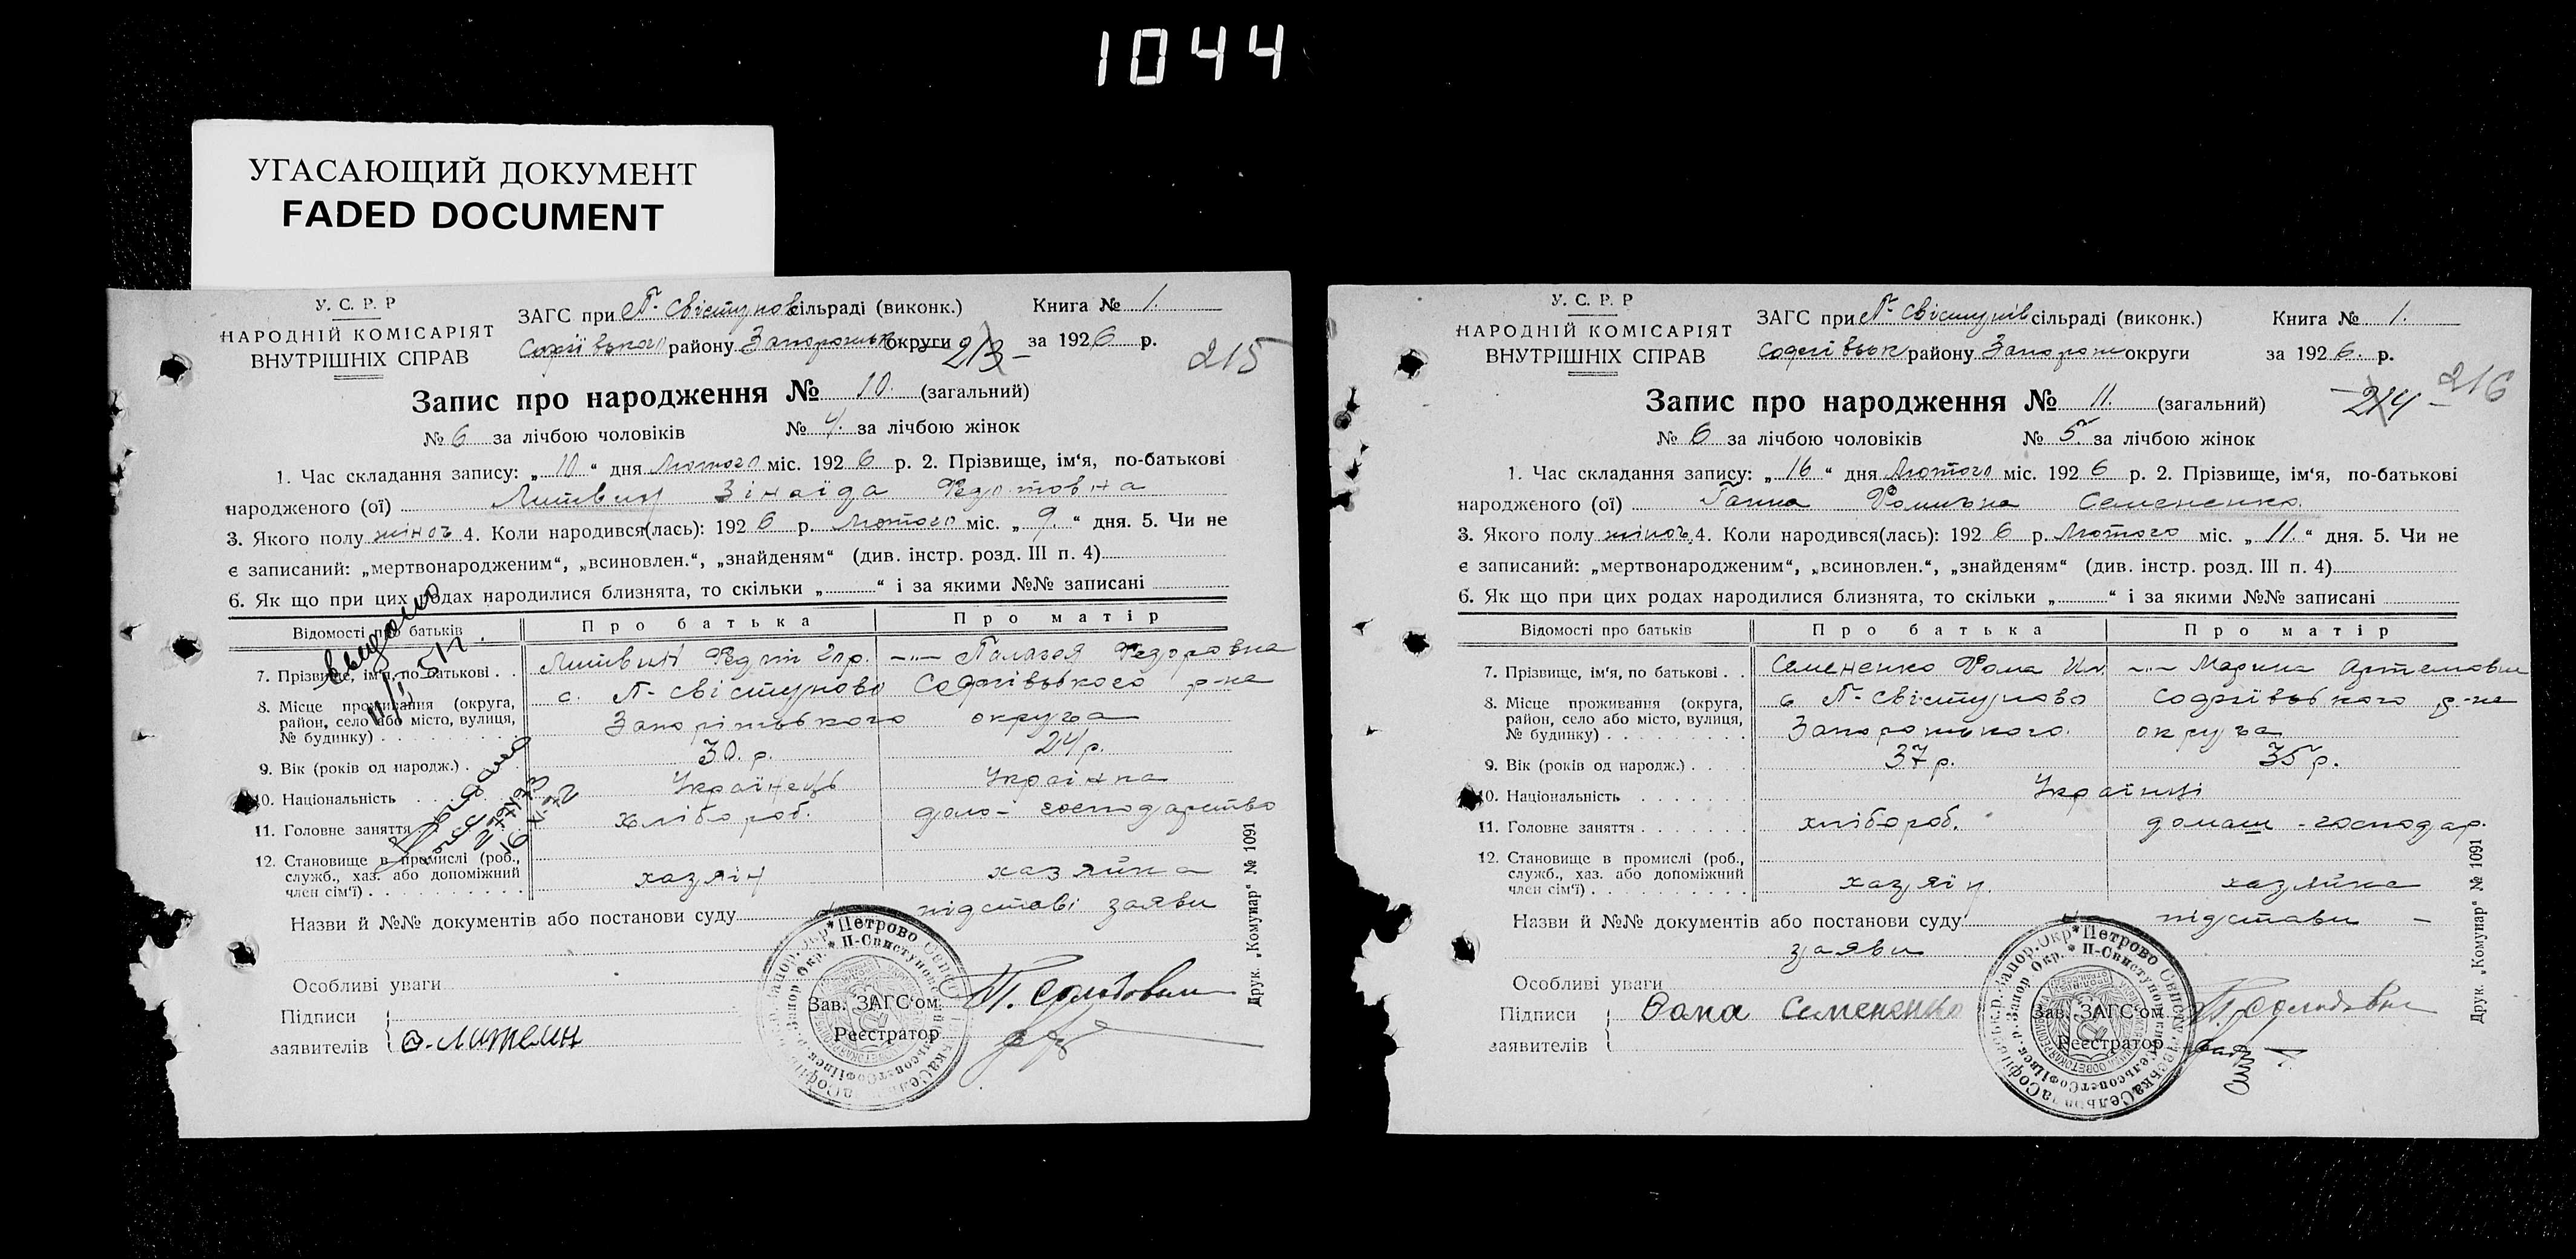 1044
УГАСАЮЩИЙ ДОКУМЕНТ
FADED DOCUMENT
У. С. Р. Р
НАРОДНІЙ КОМІСАРІЯТ
ВНУТРІШНІХ СПРАВ
ЗАГС при П-Свістунов сільраді (виконк.) Книга № 1.
Софіївського району Запорожськ округи 213 за 1926 р.
215
Запис про народження № 10. (загальний)
№ 6 за лічбою чоловіків № 4. за лічбою жінок
1. Час складання запису: „10“ дня Лютого міс. 1926 р. 2. Прізвище, ім'я, по-батькові
народженого (ої) Литвин Зінаїда Федотовна
3. Якого полу жіноч 4. Коли народився(лась): 1926 р. Лютого міс. „9.“ дня. 5. Чи не
є записаний: „мертвонародженим“, „всиновлен.“, „знайденям“ (див. інстр. розд. III п. 4)
6. Як що при цих родах народилися близнята, то скільки „ “ і за якими №№ записані
Відомості про батьків Про батька Про матір
7. Прізвище, ім'я, по батькові . . Литвин Федот Гр. -"- Палагея Федоровна
8. Місце проживання (округа, район, село або місто, вулиця, № будинку) с. П-Свістуново Софіївського р-на
Запоріжського округа
9. Вік (років од народж.) . 30. р. 24 р.
10. Національність Українець Українка
11. Головне заняття хлібороб. дом- господарство
12. Становище в промислі (роб., служб., хаз. або допоміжний член сім'ї) хазяїн хазяйка
Назви й №№ документів або постанови суду підставі заяви
Особливі уваги
Підписи заявителів Ф. Литвин
Зав. ЗАГС'ом
Реєстратор
Друк. „Комунар“ № 1091
У. С. Р. Р
НАРОДНІЙ КОМІСАРІЯТ
ВНУТРІШНІХ СПРАВ
ЗАГС при П-Свістунів сільраді (виконк.) Книга № 1.
Софіївськ району Запорож округи за 1926. р.
214 216
Запис про народження № 11. (загальний)
№ 6 за лічбою чоловіків № 5. за лічбою жінок
1. Час складання запису: „16“ дня Лютого міс. 1926 р. 2. Прізвище, ім'я, по-батькові
народженого (ої) Ганна Фомична Семененко.
3. Якого полу жіноч. 4. Коли народився(лась): 1926 р. Лютого міс. „11.“ дня. 5. Чи не
є записаний: „мертвонародженим“, „всиновлен.“, „знайденям“ (див. інстр. розд. III п. 4)
6. Як що при цих родах народилися близнята, то скільки „ “ і за якими №№ записані
Відомості про батьків Про батька Про матір
7. Прізвище, ім'я, по батькові . . Семененко Фома -"- Марина Артемовна
8. Місце проживання (округа, район, село або місто, вулиця, № будинку) с П-Свістуново Софіївського р-на
Запорожського. округа
9. Вік (років од народж.) . 37 р. 35 р.
10. Національність Українці
11. Головне заняття хлібороб. домаш - господар.
12. Становище в промислі (роб., служб., хаз. або допоміжний член сім'ї) хазяїн. хазяйка
Назви й №№ документів або постанови суду підстави -
заяви
Особливі уваги
Підписи заявителів Фома Семененко
Зав. ЗАГС'ом
Реєстратор
Друк. „Комунар“ № 1091